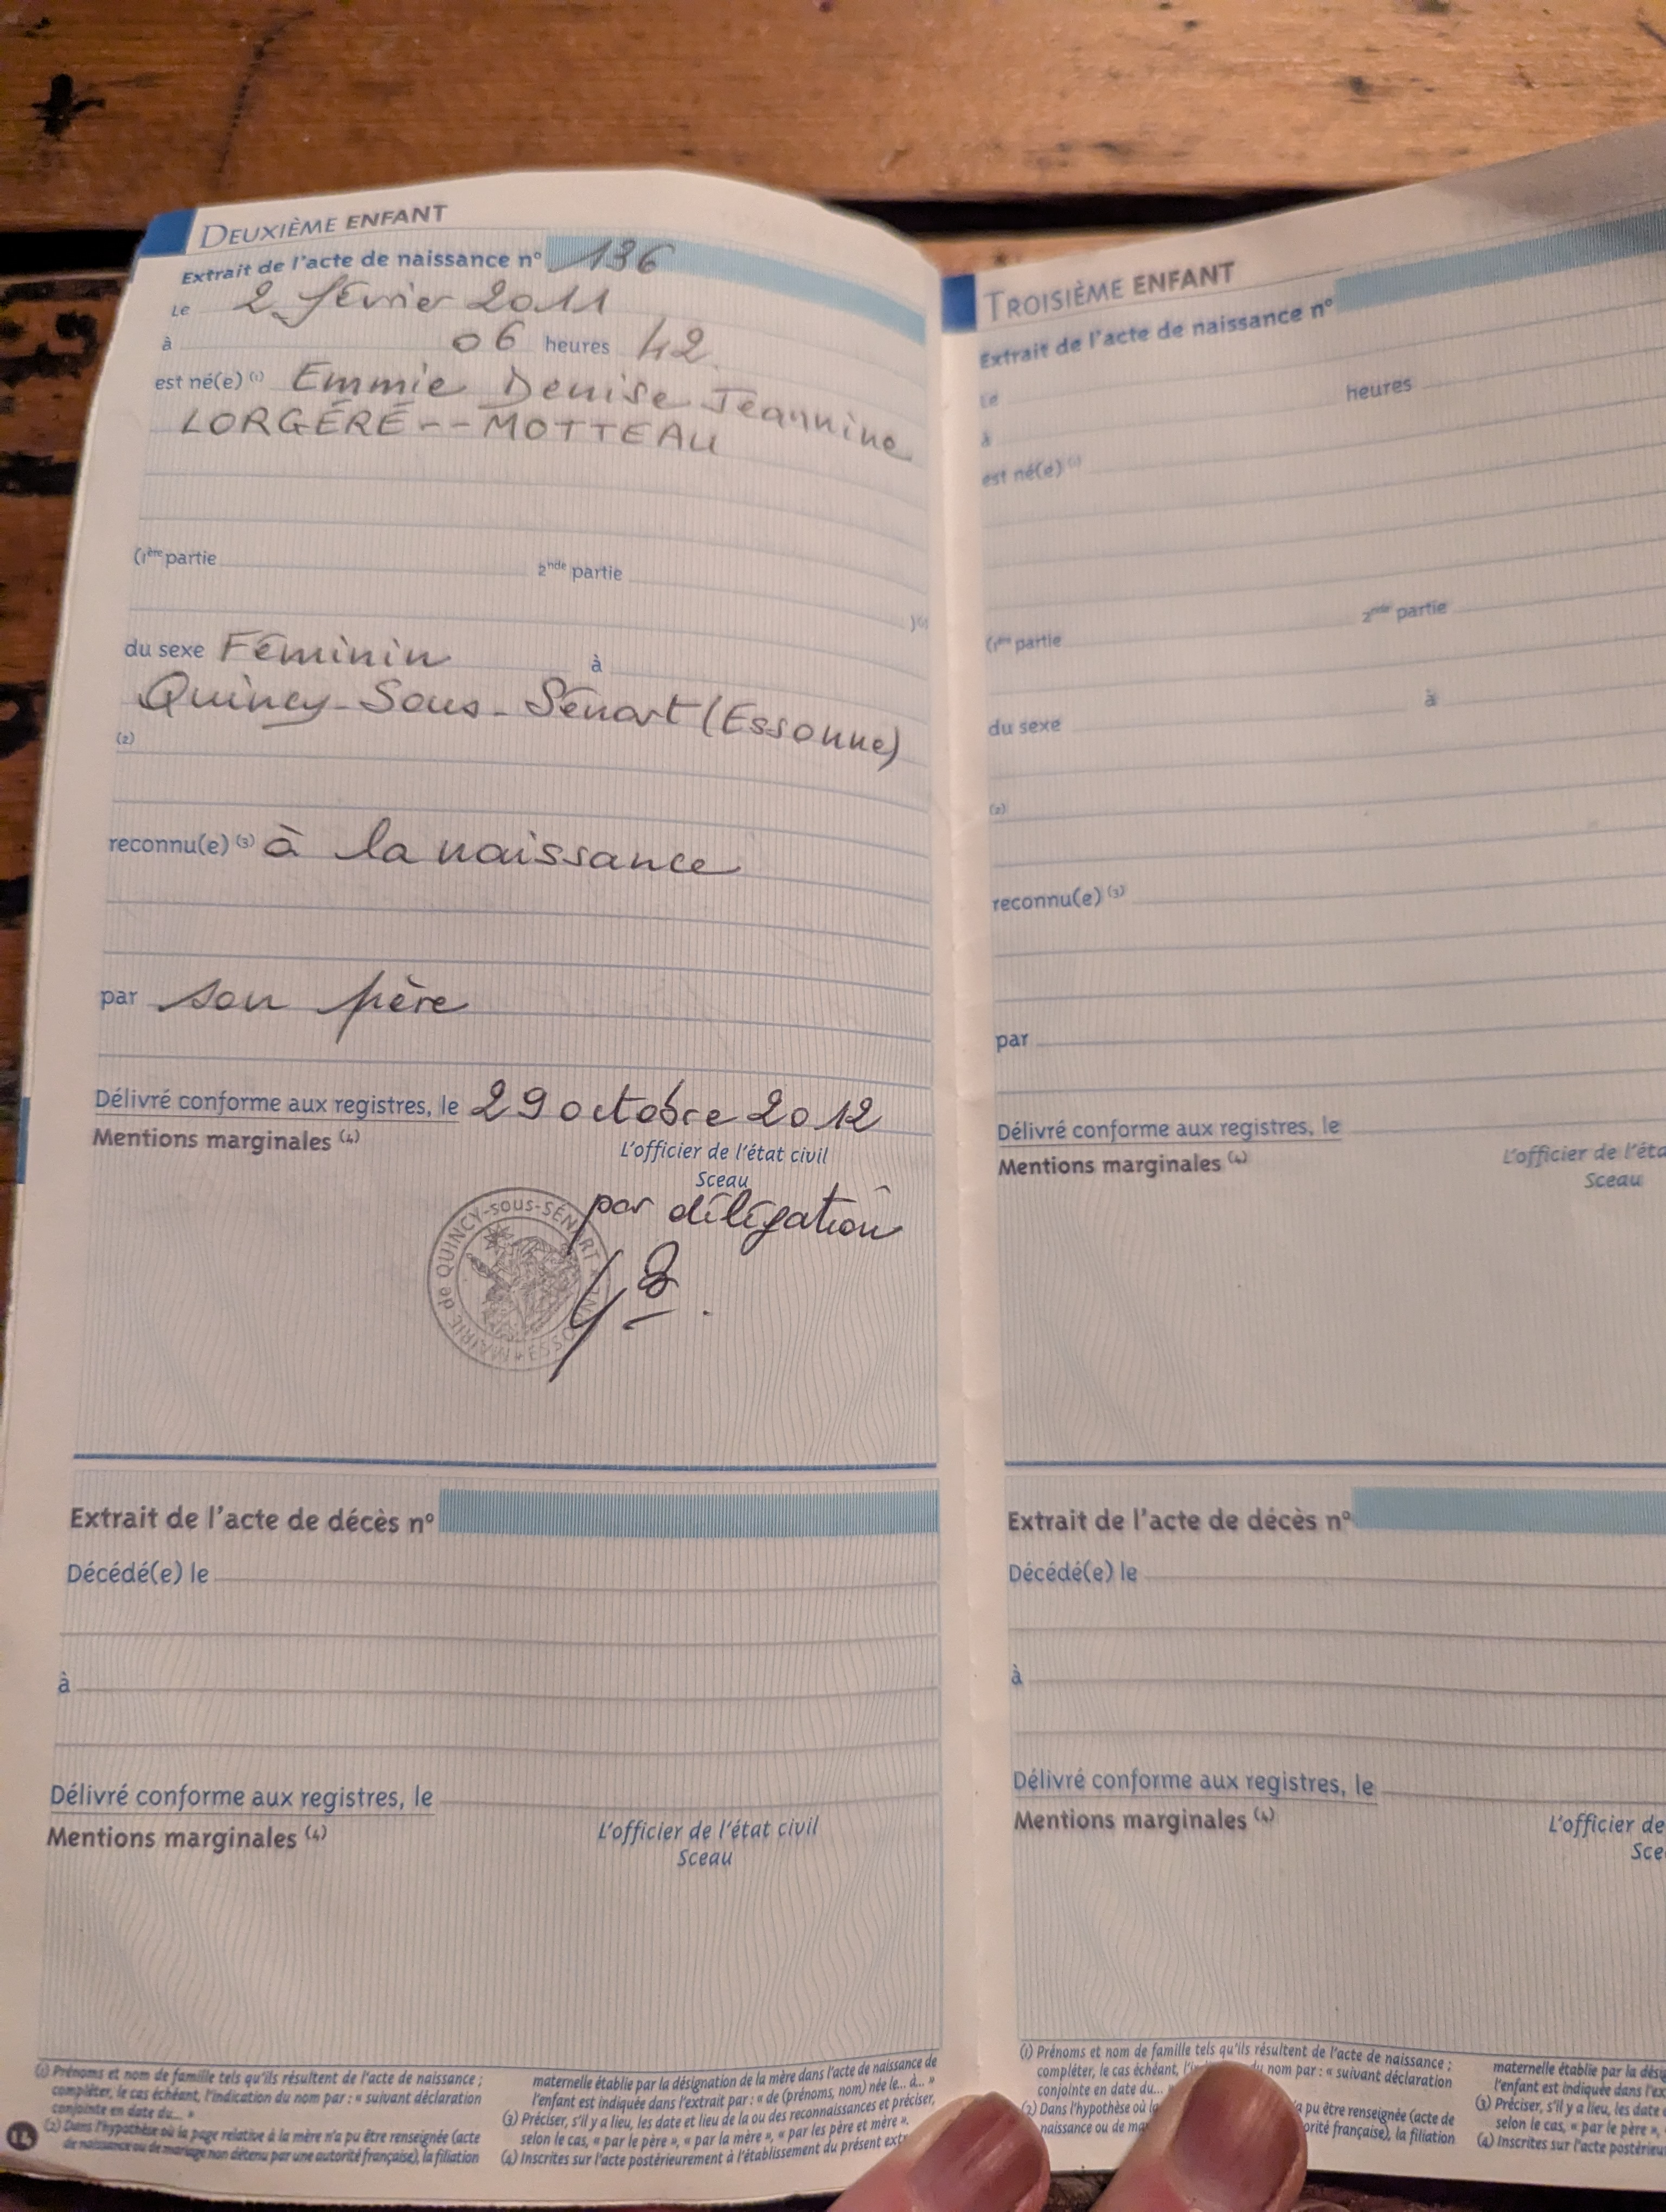 DEUXIÈME ENFANT
Extrait de l'acte de naissance n° 136
Le 2 février 2011
à 06 heures 42
est né(e) (1) Emmie Denise Jeannine
LORGÉRÉ -- MOTTEAU
(1ère partie 2nde partie
)(1)
du sexe Féminin à
Quincy-Sous-Sénart (Essonne)
(2)
reconnu(e) (3) à la naissance
par son père
Délivré conforme aux registres, le 29 octobre 2012
Mentions marginales (4)
L'officier de l'état civil
Sceau
par délégation
MAIRIE de QUINCY-sous-SÉNART * ESSONNE *
Extrait de l'acte de décès n°
Décédé(e) le
à
Délivré conforme aux registres, le
Mentions marginales (4)
L'officier de l'état civil
Sceau
(1) Prénoms et nom de famille tels qu'ils résultent de l'acte de naissance ;
compléter, le cas échéant, l'indication du nom par : « suivant déclaration
conjointe en date du... »
(2) Dans l'hypothèse où la page relative à la mère n'a pu être renseignée (acte
de naissance ou de mariage non détenu par une autorité française), la filiation
maternelle établie par la désignation de la mère dans l'acte de naissance de
l'enfant est indiquée dans l'extrait par : « de (prénoms, nom) née le... à... »
(3) Préciser, s'il y a lieu, les date et lieu de la ou des reconnaissances et préciser,
selon le cas, « par le père », « par la mère », « par les père et mère ».
(4) Inscrites sur l'acte postérieurement à l'établissement du présent extr
14
TROISIÈME ENFANT
Extrait de l'acte de naissance n°
Le
à heures
est né(e) (1)
(1ère partie 2nde partie
du sexe à
(2)
reconnu(e) (3)
par
Délivré conforme aux registres, le
Mentions marginales (4)
L'officier de l'éta
Sceau
Extrait de l'acte de décès n°
Décédé(e) le
à
Délivré conforme aux registres, le
Mentions marginales (4)
L'officier de
Sce
(1) Prénoms et nom de famille tels qu'ils résultent de l'acte de naissance ;
compléter, le cas échéant, l'in du nom par : « suivant déclaration
conjointe en date du... »
(2) Dans l'hypothèse où la a pu être renseignée (acte de
naissance ou de ma orité française), la filiation
maternelle établie par la désig
l'enfant est indiquée dans l'ex
(3) Préciser, s'il y a lieu, les date
selon le cas, « par le père »,
(4) Inscrites sur l'acte postérieu